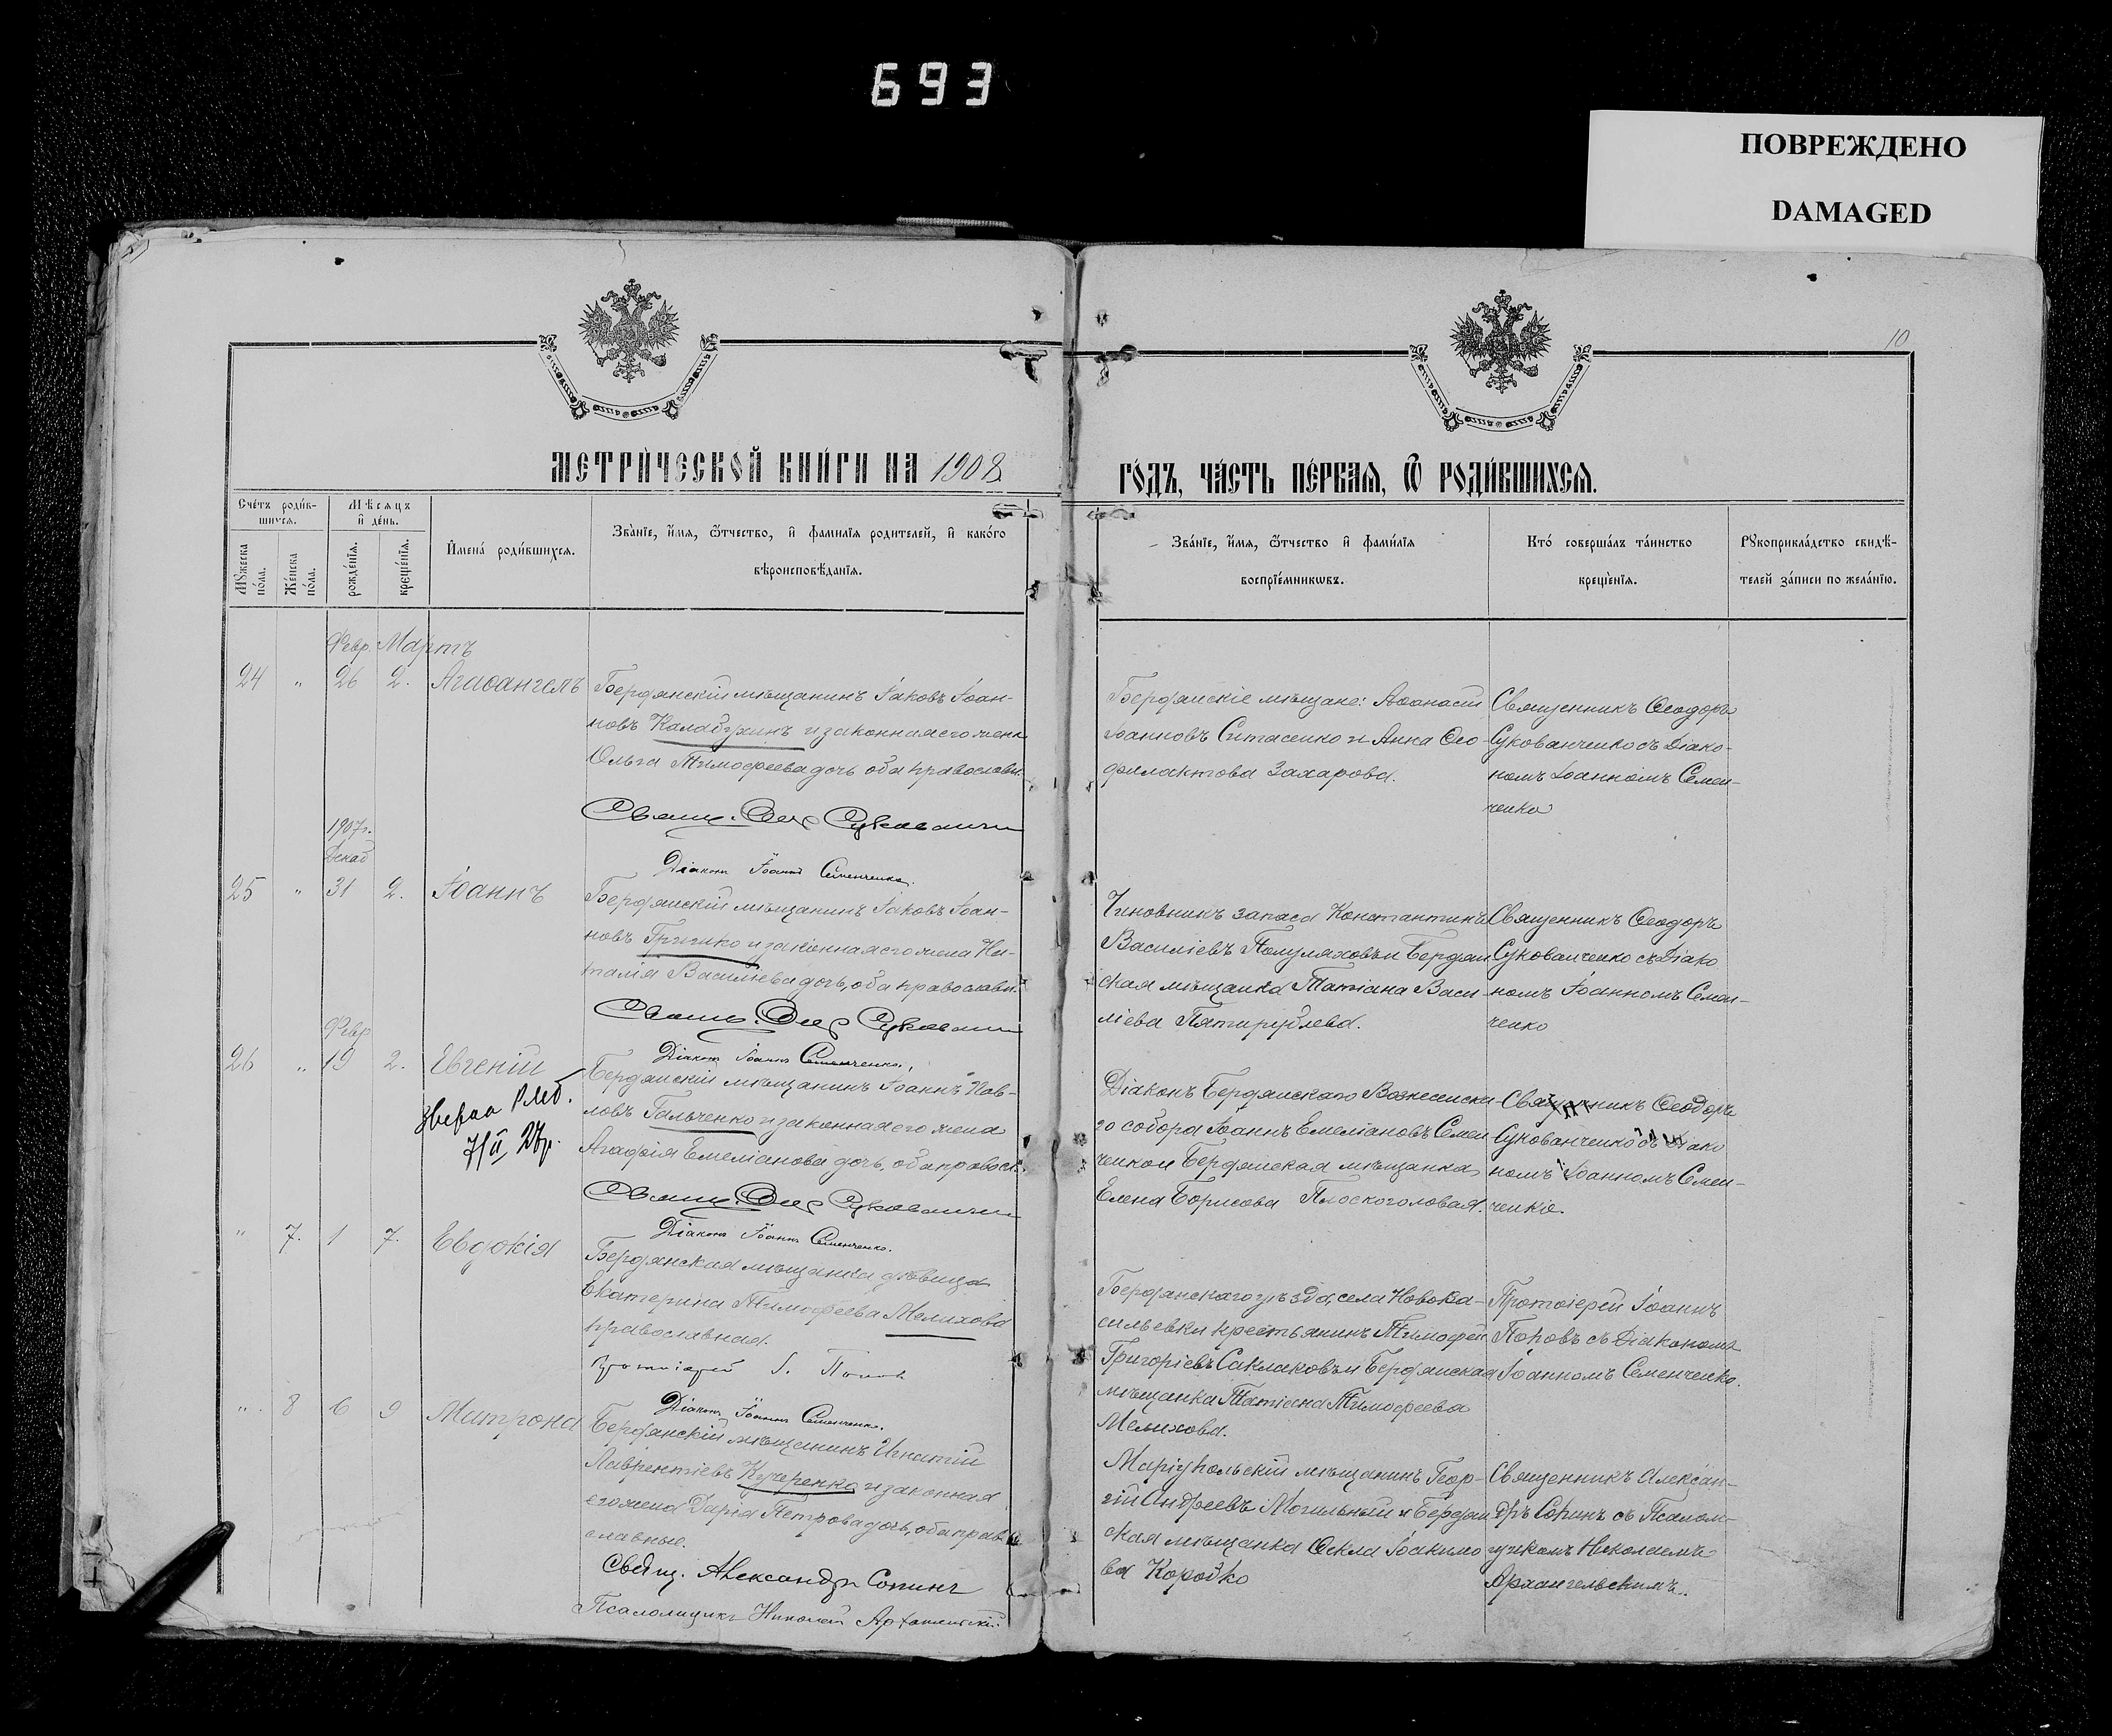 693
ПОВРЕЖДЕНО
DAMAGED
10
МЕТРИ́ЧЕСКОЙ КНИ́ГИ НА 1908
ГО́ДЪ, ЧА́СТЬ ПЕ́РВАЯ, Ѡ РОДИ́ВШИХСЯ.
Сче́тъ роди́в-
шихся.
Мѣ́сяцъ
и҆ де́нь.
И҆мена́ роди́вшихся.
Зва́нїе, и҆́мя, ѻ҆́тчество, и҆ фами́лїя роди́телей, и҆ како́го
вѣроисповѣ́данїя.
Мꙋ́жеска
по́ла.
Же́нска
по́ла.
рожде́нїя.
креще́нїя.
Зва́нїе, и҆́мя, ѻ҆́тчество и҆ фами́лїя
воспрїе́мникѡвъ.
Кто́ соверша́лъ та́инство
креще́нїя.
Рꙋкоприкла́дство свидѣ́-
телей за́писи по жела́нїю.
Февр. Мартъ
24 " 26 2. Агаѳангелъ
Бердянскій мѣщанинъ Іаковъ Іоан-
новъ Калабухинъ и законная его жена
Ольга Тимофеева дочь оба православн.
Свящ. Ѳеод Сукованчен
Діаконъ Іоаннъ Семенченко.
Бердянскіе мѣщане: Аѳанасій
Іоанновъ Ситасенко и Анна Ѳео-
филактова Захарова.
Священникъ Ѳеодоръ
Сукованченко съ Діако-
номъ Іоанномъ Семен-
ченко
1907 г.
Декаб
25 " 31 2. Іоаннъ
Бердянскій мѣщанинъ Іаковъ Іоан-
новъ Гришко и законная его жена На-
талія Василіева дочь, оба православн.
Свящ. Ѳеод Сукованчен
Діаконъ Іоаннъ Семенченко.
Чиновникъ запаса Константинъ
Василіевъ Полуляховъ и Бердян
ская мѣщанка Татіана Васи-
ліева Пятирублева.
Священникъ Ѳеодоръ
Сукованченко съ Діако
номъ Іоанномъ Семен-
ченко
Февр
26 " 19 2. Евгеній
7/II 27г.
Бердянскій мѣщанинъ Іоаннъ Пав-
ловъ Гальченко и законная его жена
Агафія Емеліанова дочь, оба правосл.
Свящ. Ѳеод Сукованчен
Діаконъ Іоаннъ Семенченко.
Діаконъ Бердянскаго Вознесенска-
го собора Іоаннъ Емеліановъ Семен
ченко и Бердянская мѣщанка
Елена Борисова Плоскоголовая.
Священникъ Ѳеодоръ
Сукованченко съ Діако
номъ Іоанномъ Семен-
ченко.
" 7. 1 7. Евдокія
Бердянская мѣщанка дѣвица
Екатерина Тимофеева Мелихова
православная.
Протоіерей І. Поповъ
Діаконъ Іоаннъ Семенченко.
Бердянскаго уѣзда, села Новова-
сильевки крестьянинъ Тимофей
Григоріевъ Саклаковъ и Бердянская
мѣщанка Татіана Тимофеева
Мелихова.
Протоіерей Іоаннъ
Поповъ съ Діакономъ
Іоанномъ Семенченко.
" 8 6 9 Матрона
Бердянскій мѣщанинъ Игнатій
Лаврентіевъ Кучеренко и законная
его жена Дарія Петрова дочь, оба право
славные.
Свящ. Александръ Сопинъ
Псаломщикъ Николай Архангельскій
Маріупольскій мѣщанинъ Геор-
гій Андреевъ Могильный и Бердян
ская мѣщанка Ѳекла Іоакимо
ва Коробко
Священникъ Алексан-
дръ Сопинъ съ Псалом-
щикомъ Николаемъ
Архангельскимъ.